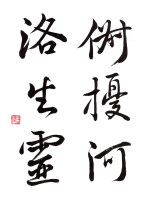 俯擾河
洛生靈